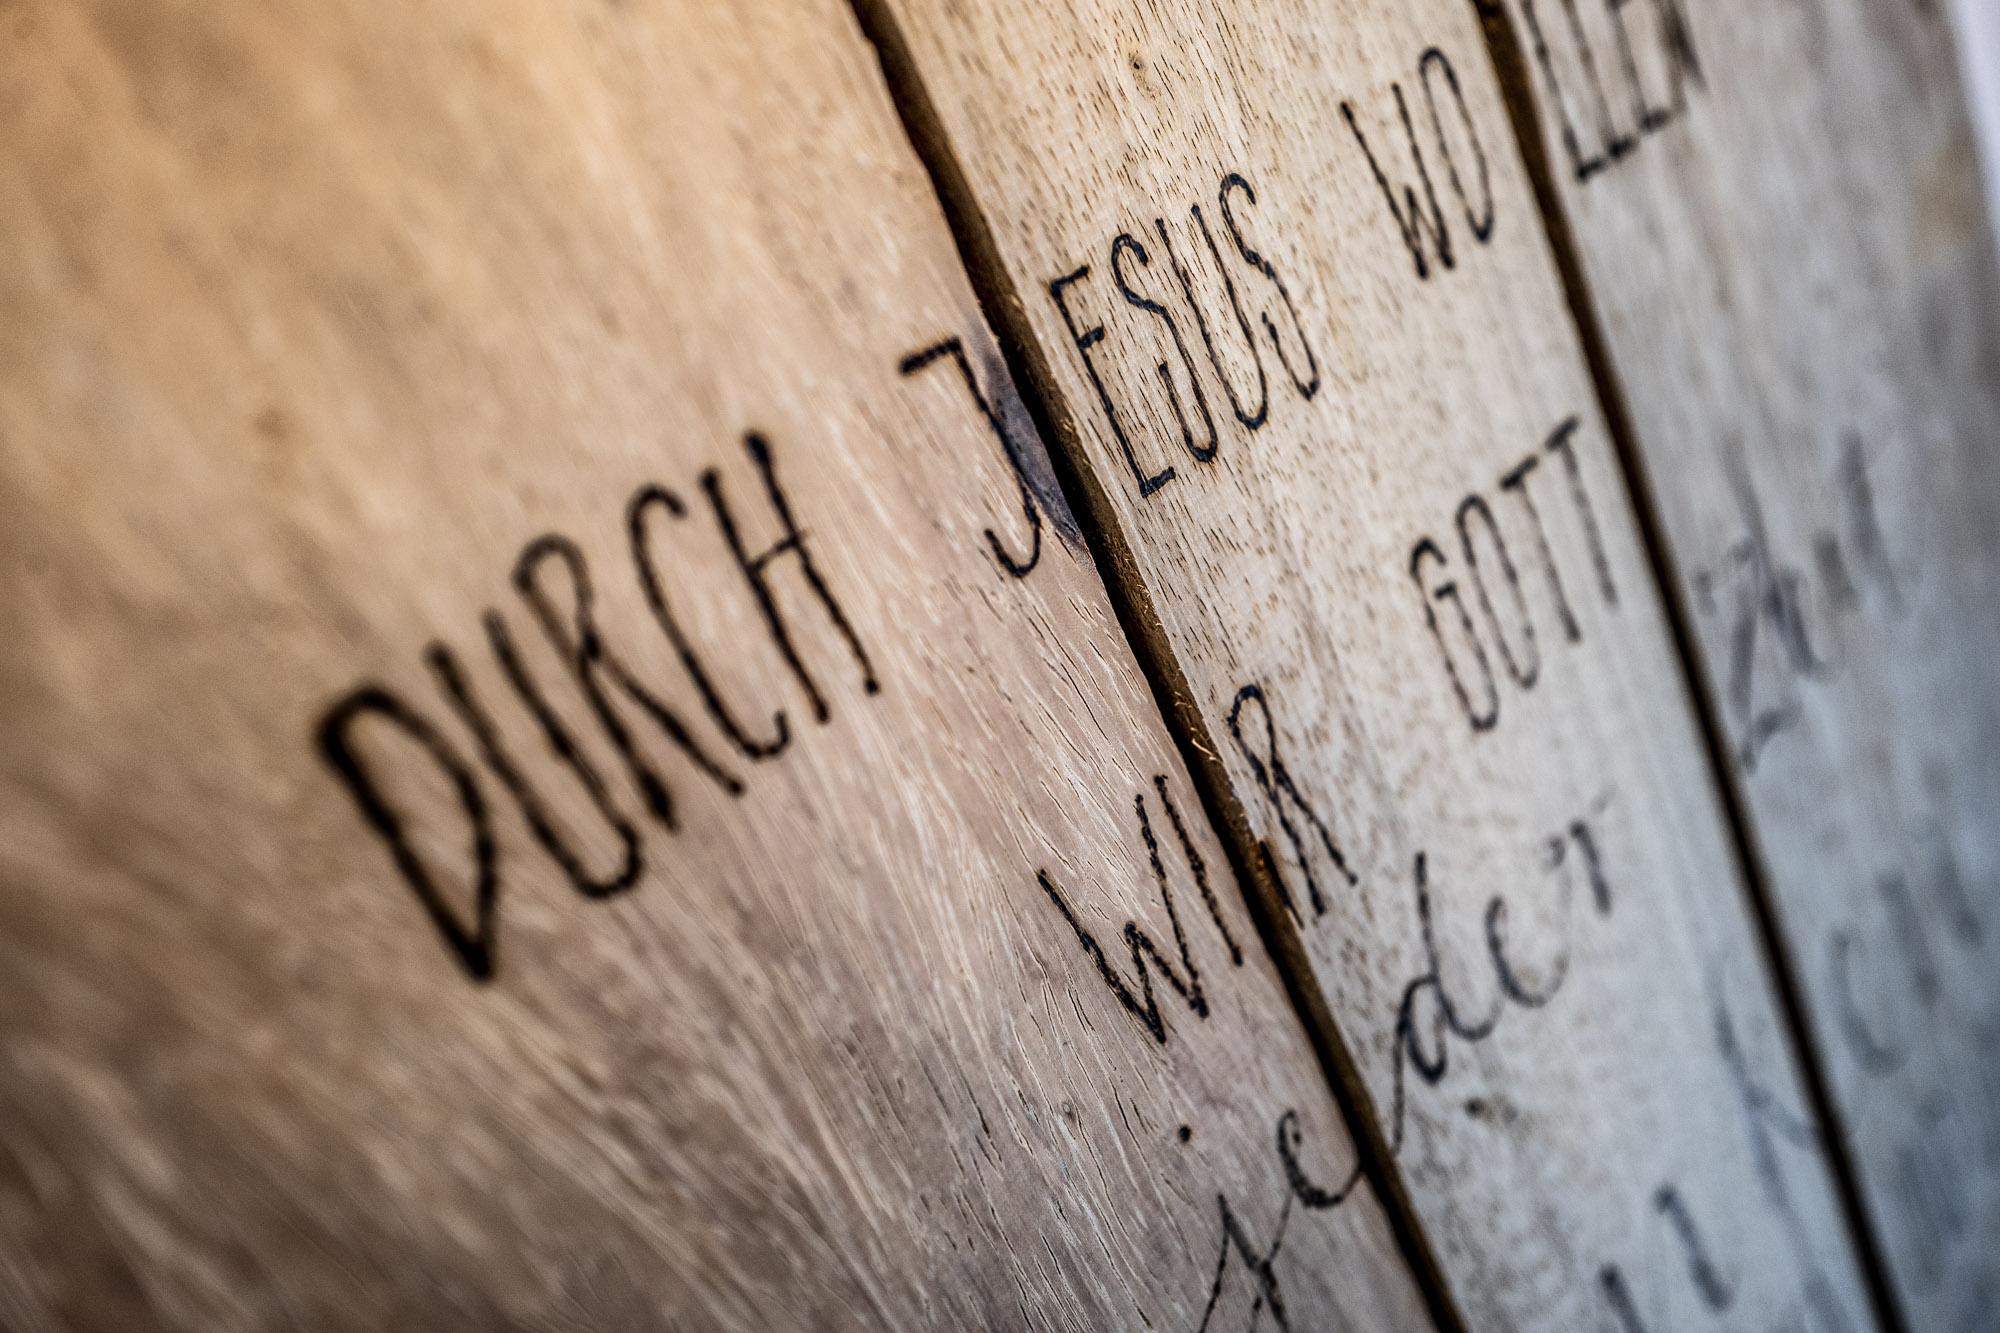 DURCH JESUS WOLLEN
WIR GOTT
jeder Zeit